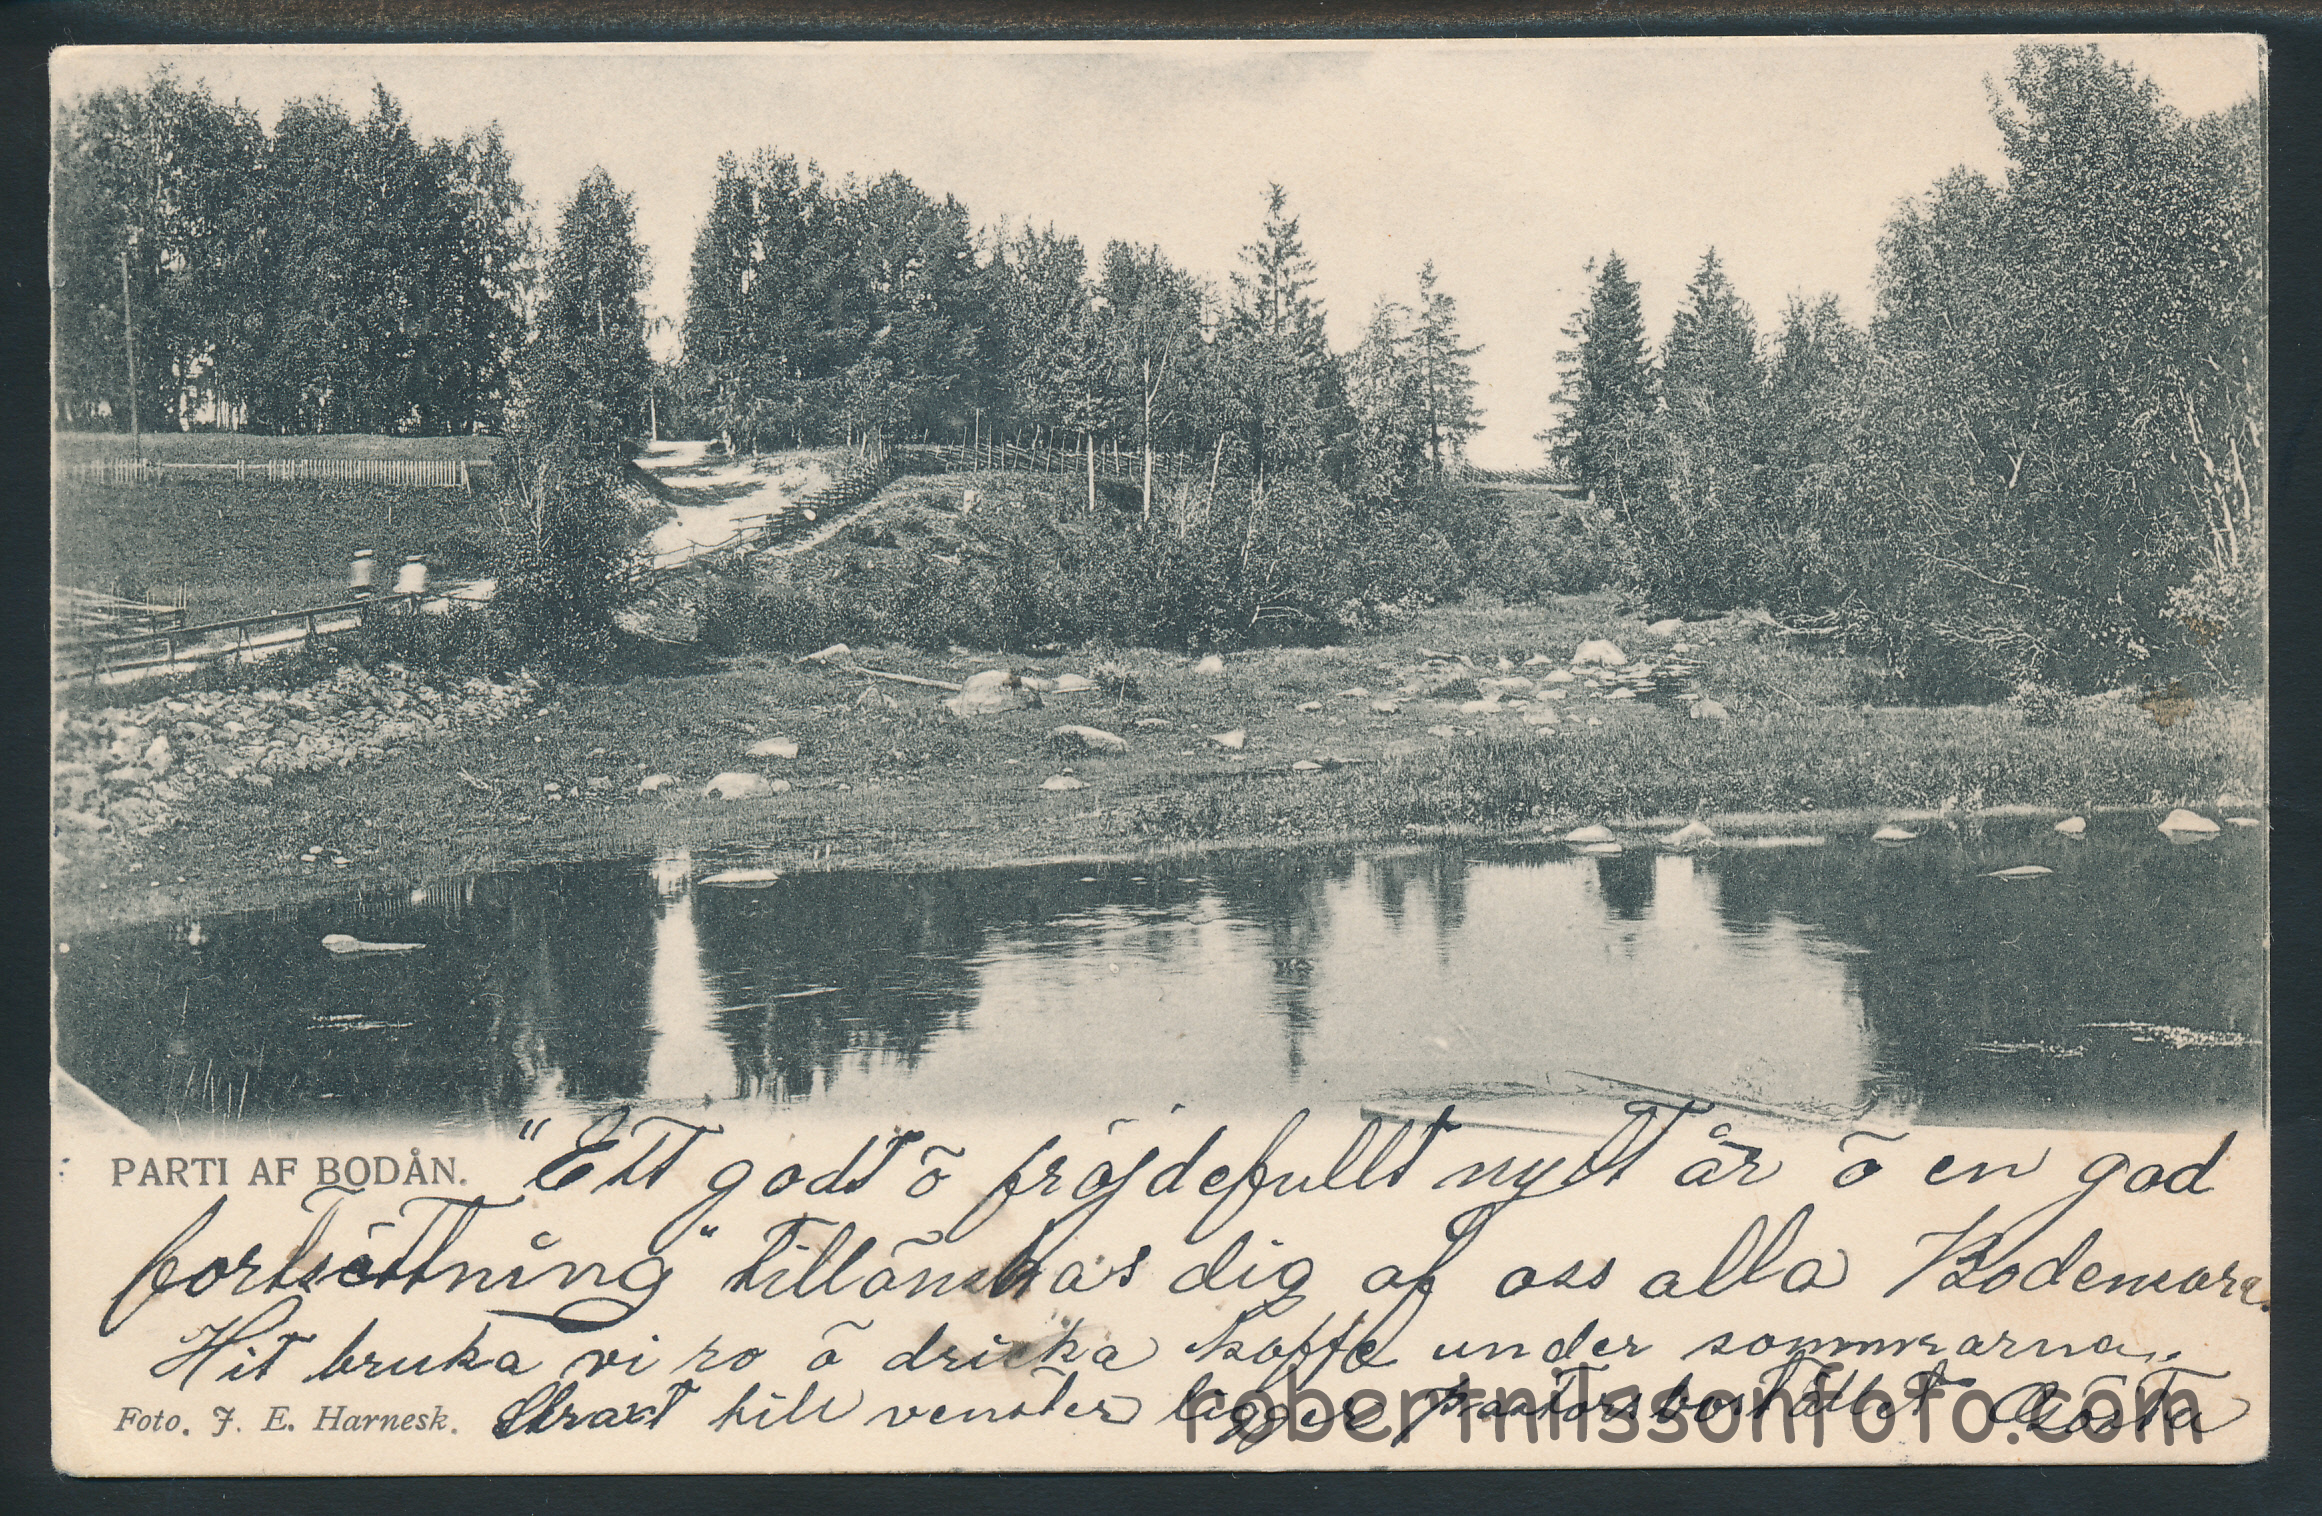 PARTI AF BODÅN.
"Ett godt ō fröjdefullt nytt år ō en god
fortsättning" tillönskas dig af oss alla Bodensare.
Hit bruka vi ro ō dricka kaffe under somrarna.
Foto. J. E. Harnesk.
Straxt till venster ligger pastorsbostället Gösta
robertnilssonfoto.com